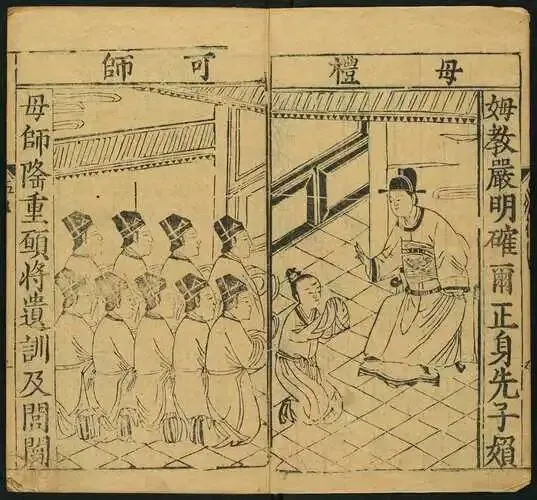 母禮可師
姆教嚴明確爾正身先子媍
母師隆重願將遺訓及閭閻